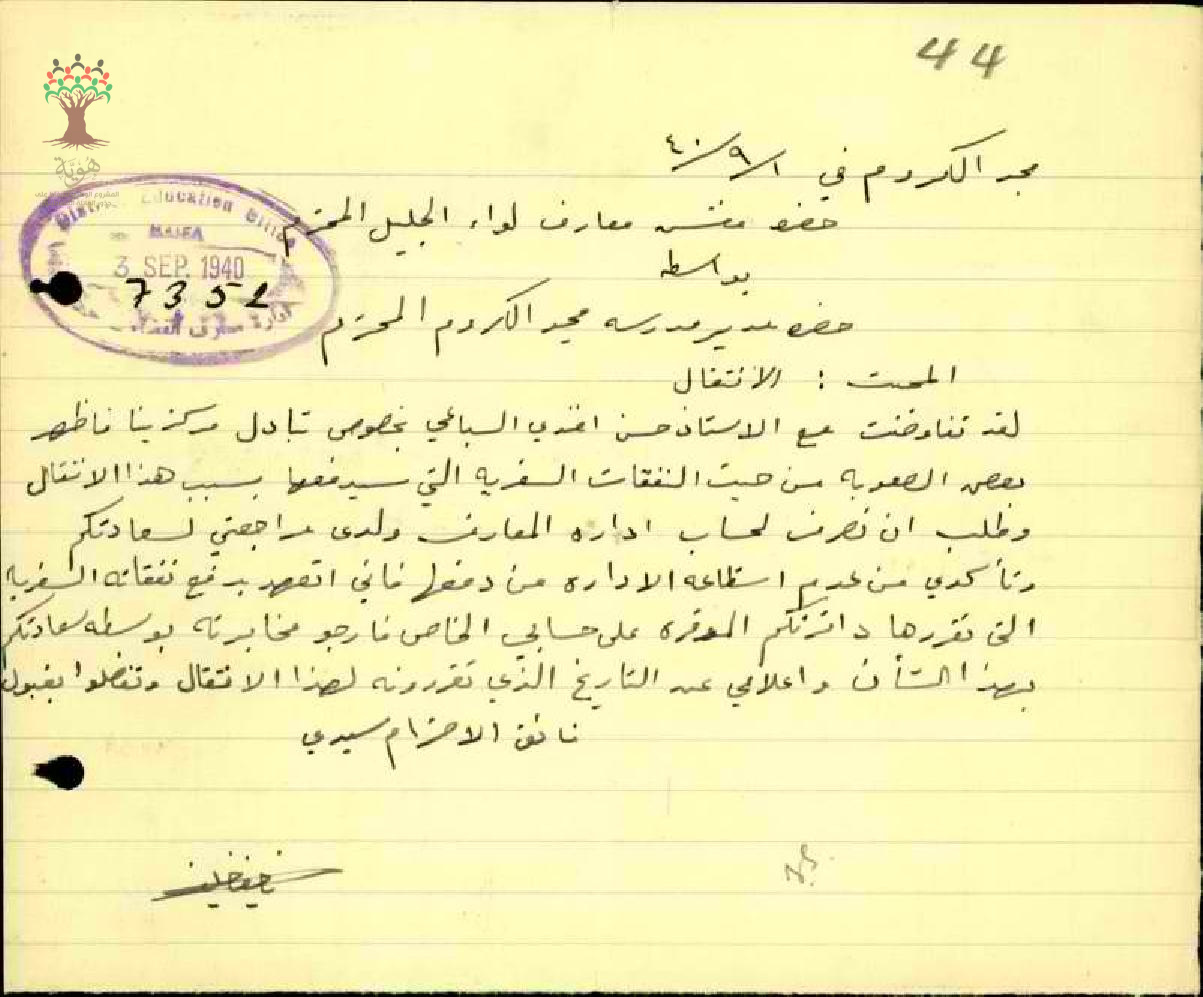 44
مجد الكروم في ١/٩/٤٠
حضرة مفتش معارف لواء الجليل المحترم
هوية
District Education Office
HAIFA
3 SEP. 1940
7352
بواسطة
حضرة مدير مدرسه مجد الكروم المحترم
المبحث : الانتقال
لقد تفاوضت مع الاستاذ حسن افندي السباعي بخصوص تبادل مركزينا فاظهر
بعض الصعوبه من حيث النفقات السفريه التي سيدفعها بسبب هذا الانتقال
وطلب ان تصرف لحساب اداره المعارف ولدى مراجعتي لسعادتكم
وتأكدي من عدم استطاعه الاداره من دفعها فاني اتعهد بدفع نفقاته السفريه
التي تقررها دائرتكم الموقره على حسابي الخاص فارجو مخابرته بوسطه سعادتكم
بهذا الشأن واعلامي عن التاريخ الذي تقررونه لهذا الانتقال وتفضلوا بقبول
فائق الاحترام سيدي